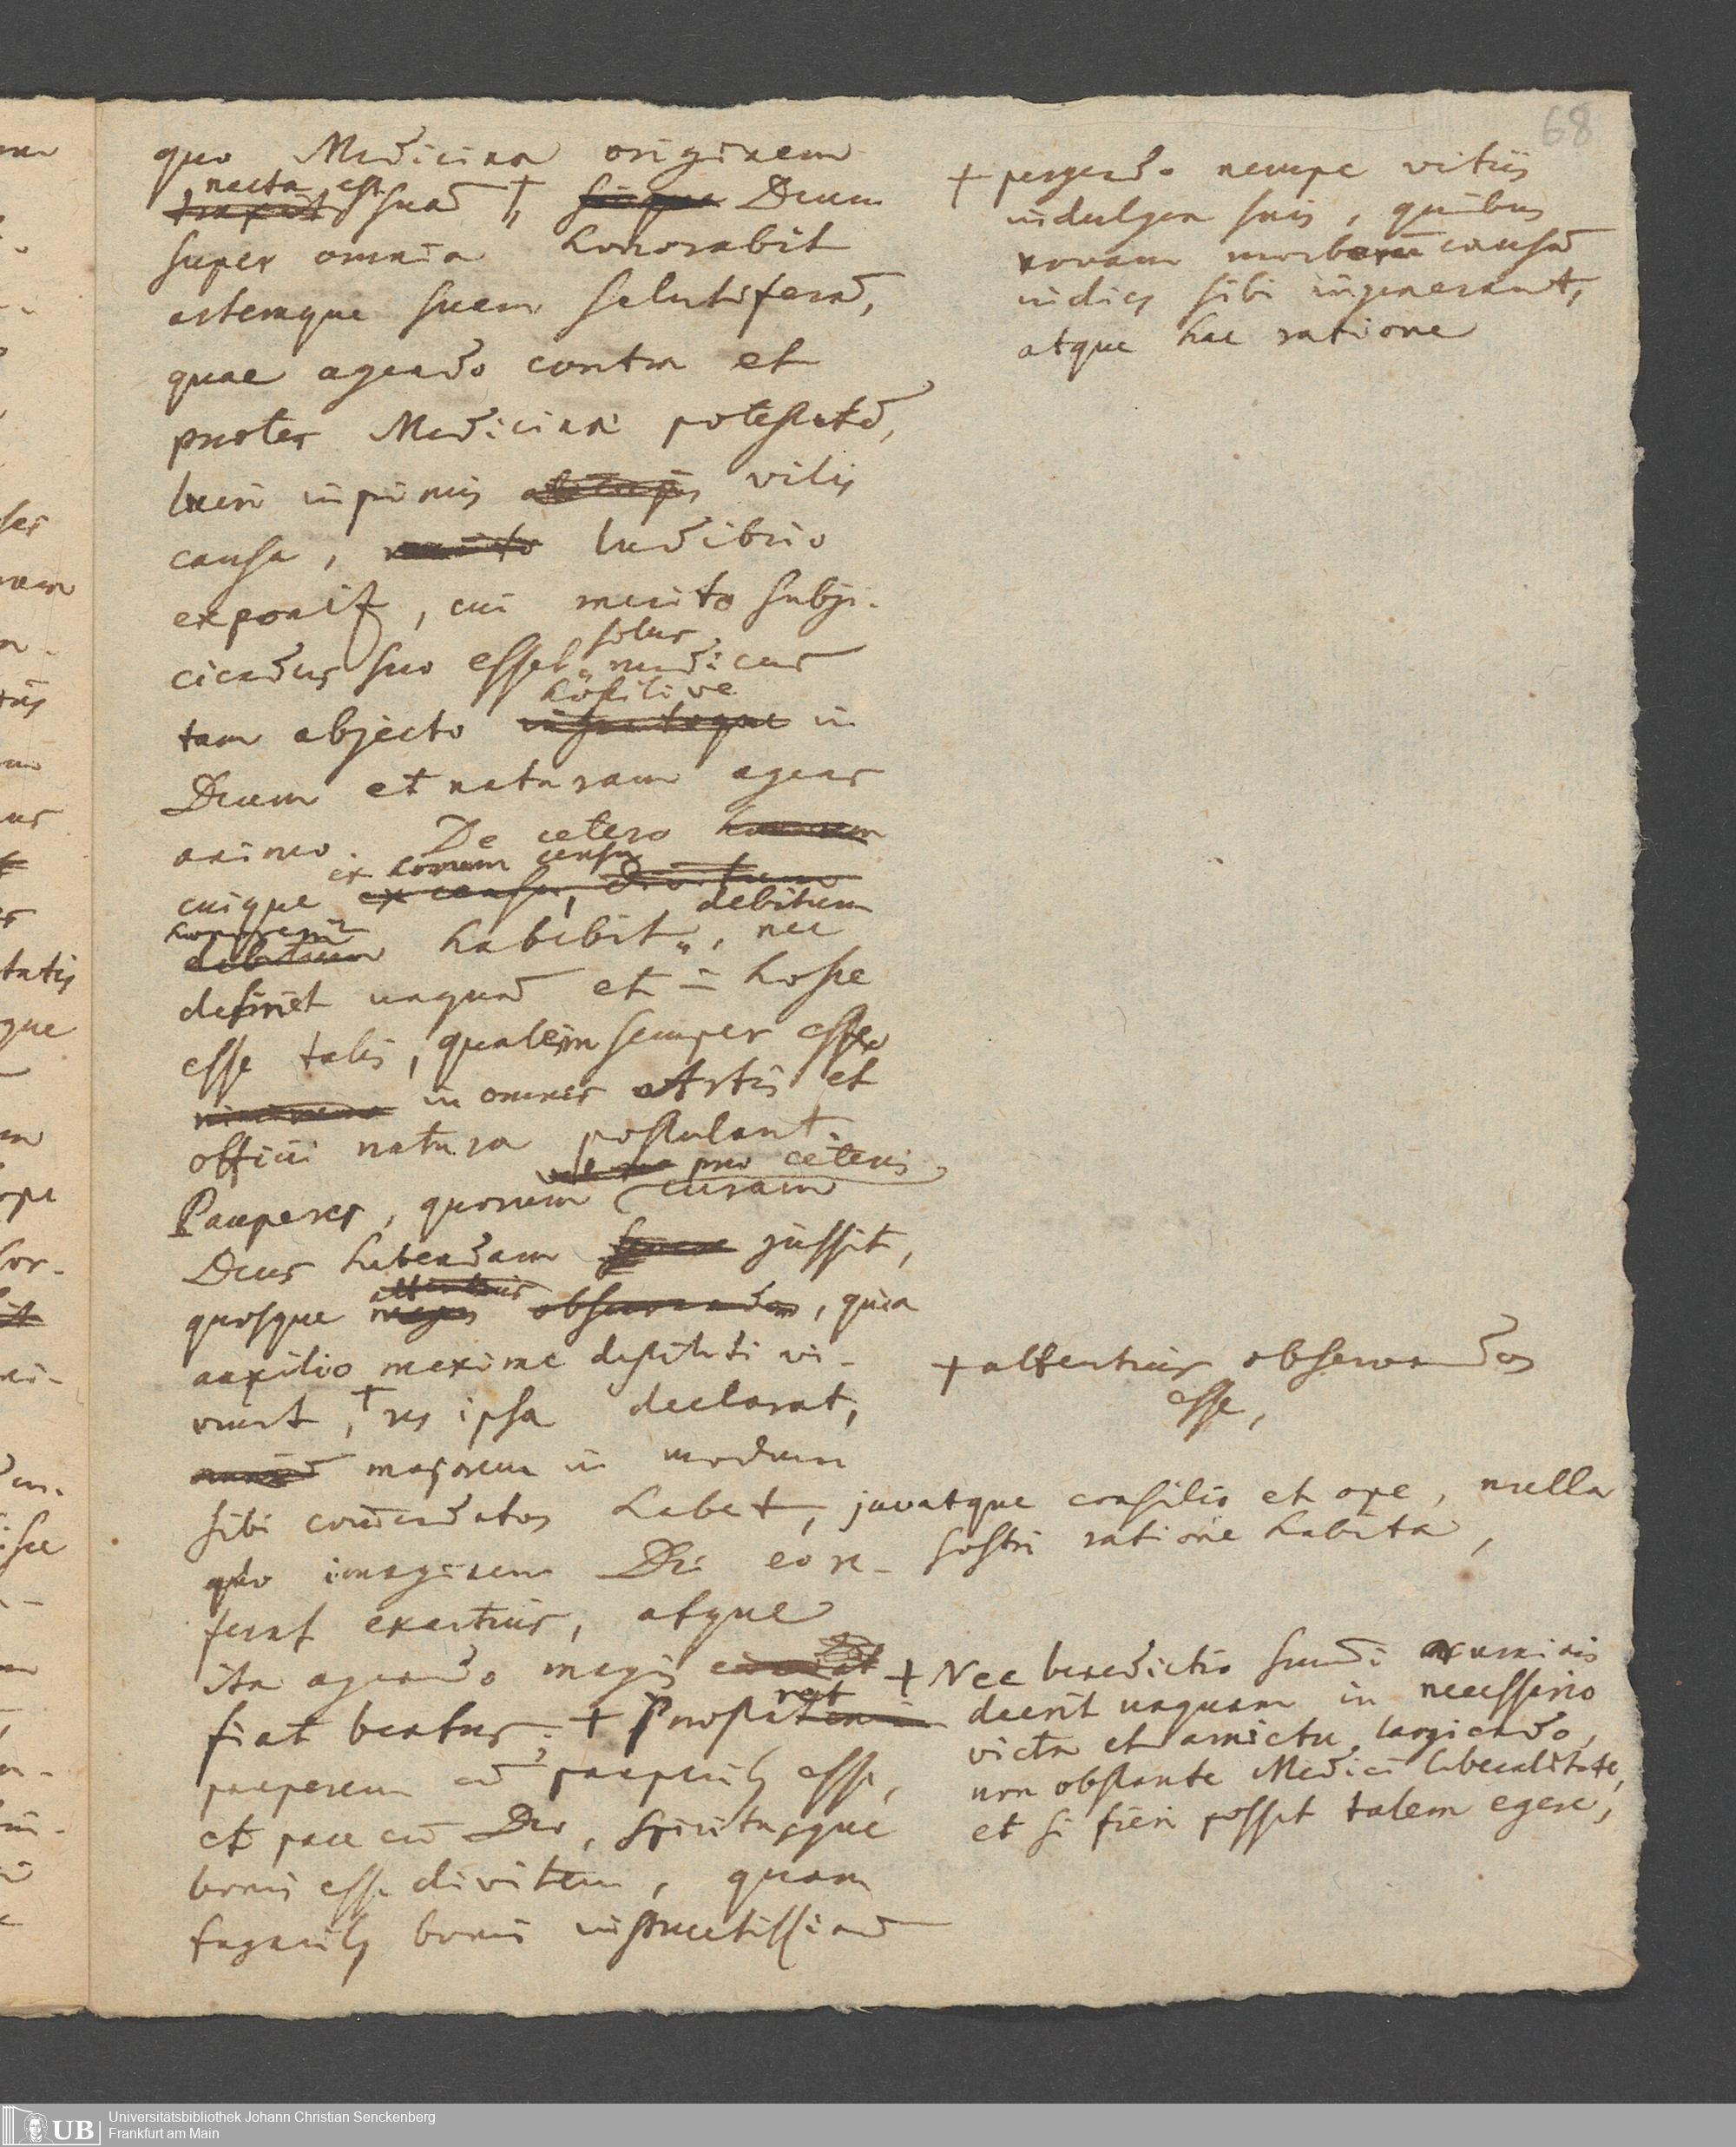 68
quo Medicina originem
nacta est
traxit suam̄ †, Deum
super omnia honorabit
artemque suam salutiferam̄,
quae agendo contra et
praeter Medicinae potestatem̄,
lucri inprimis vilis
causa, merito ludibrio
exponit, cui merito subji-
ciendus suo esset solus medicus
hostilive
tam abjecto in
Deum et naturam agens
animo. De cetero
ex horum censu
cuique ex censu, divitum
honorem debitum
debitum habebit, nec
desinet unquam̄ et in hosce
esse talis, qualem semper esse
in omnes Artis et
officii natura postulant.
pro ceteris
Pauperes, quorum curam
Deus habendam jussit,
attentius
quosque magis observandos, quia
auxilio maxime destituti vi-
vunt, † res ipsa declarat,
majorem in modum
sibi com̄endatos habet, juvatque consilio et ope, nulla
quo imaginem Dei eo re- sostri ratione habita,
ferat exactius, atque
ita agendo magis
fiat beatus; + Praestat
pauperem cum̄ pauperibus esse,
et pace cum̄ Deo, Spiritusque
bonis esse divitem, quam
fugacibus bonis instructissimum̄
+ pergendo nempe vitiis
indulgen suis, quibus
novam morborum̄ causam̄
indies sibi ingenerant,
atque hac ratione
+ attentius observandos
esse,
+ Nec benedictio sum̄i numinis
deerit unquam in necessario
victu et amictu largiendo,
non obstante Medici liberalitate,
et si fieri posset talem egere,
UB
Universitätsbibliothek Johann Christian Senckenberg
Frankfurt am Main